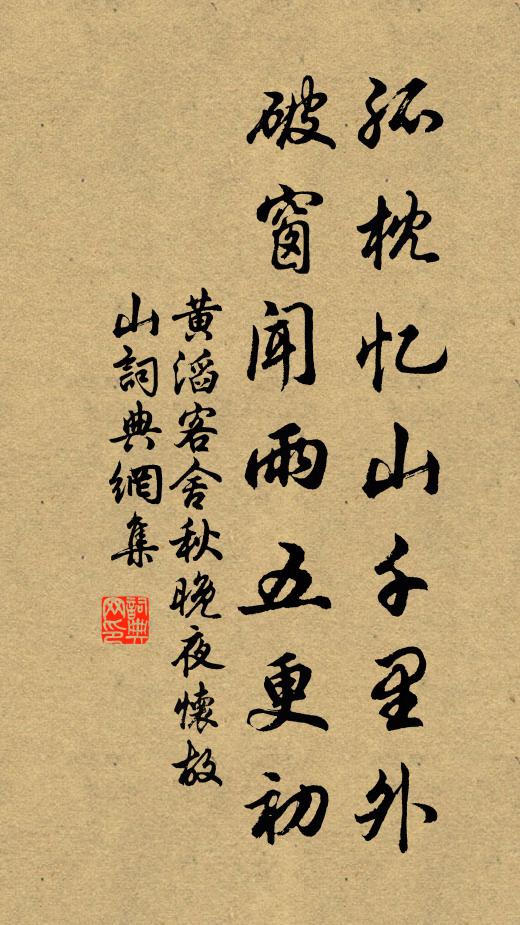 孤枕忆山千里外
破窗闻雨五更初
黄滔客舍秋晚夜懷故
山詞典網集
詞典网印